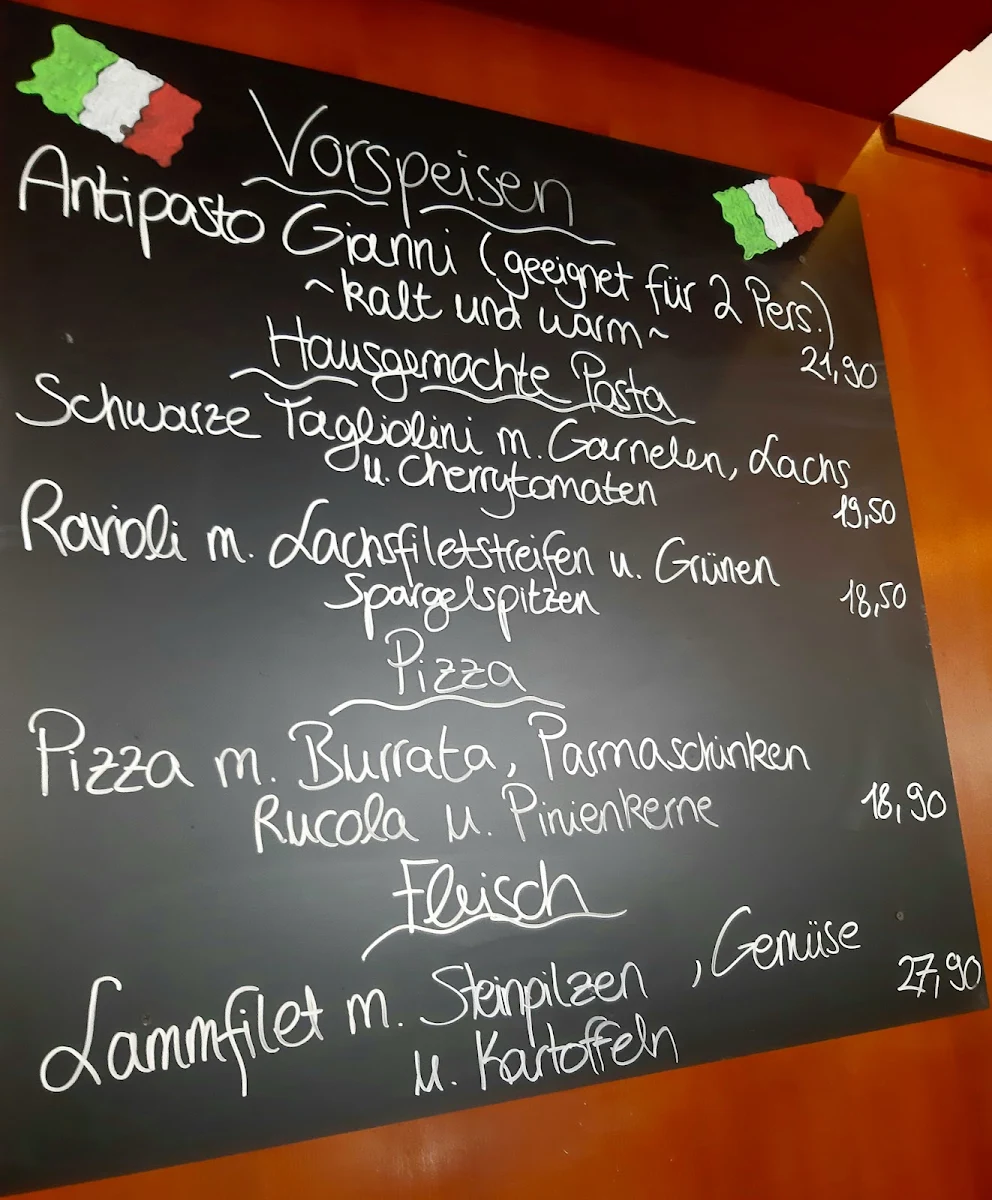 Vorspeisen
Antipasto Gianni (geeignet für 2 Pers.)
~kalt und warm~
21,90
Hausgemachte Pasta
Schwarze Tagliolini m. Garnelen, Lachs
u. Cherrytomaten
19,50
Ravioli m. Lachsfiletstreifen u. Grünen
Spargelspitzen
18,50
Pizza
Pizza m. Burrata, Parmaschinken
Rucola u. Pinienkerne
18,90
Fleisch
Lammfilet m. Steinpilzen , Gemüse
27,90
u. Kartoffeln